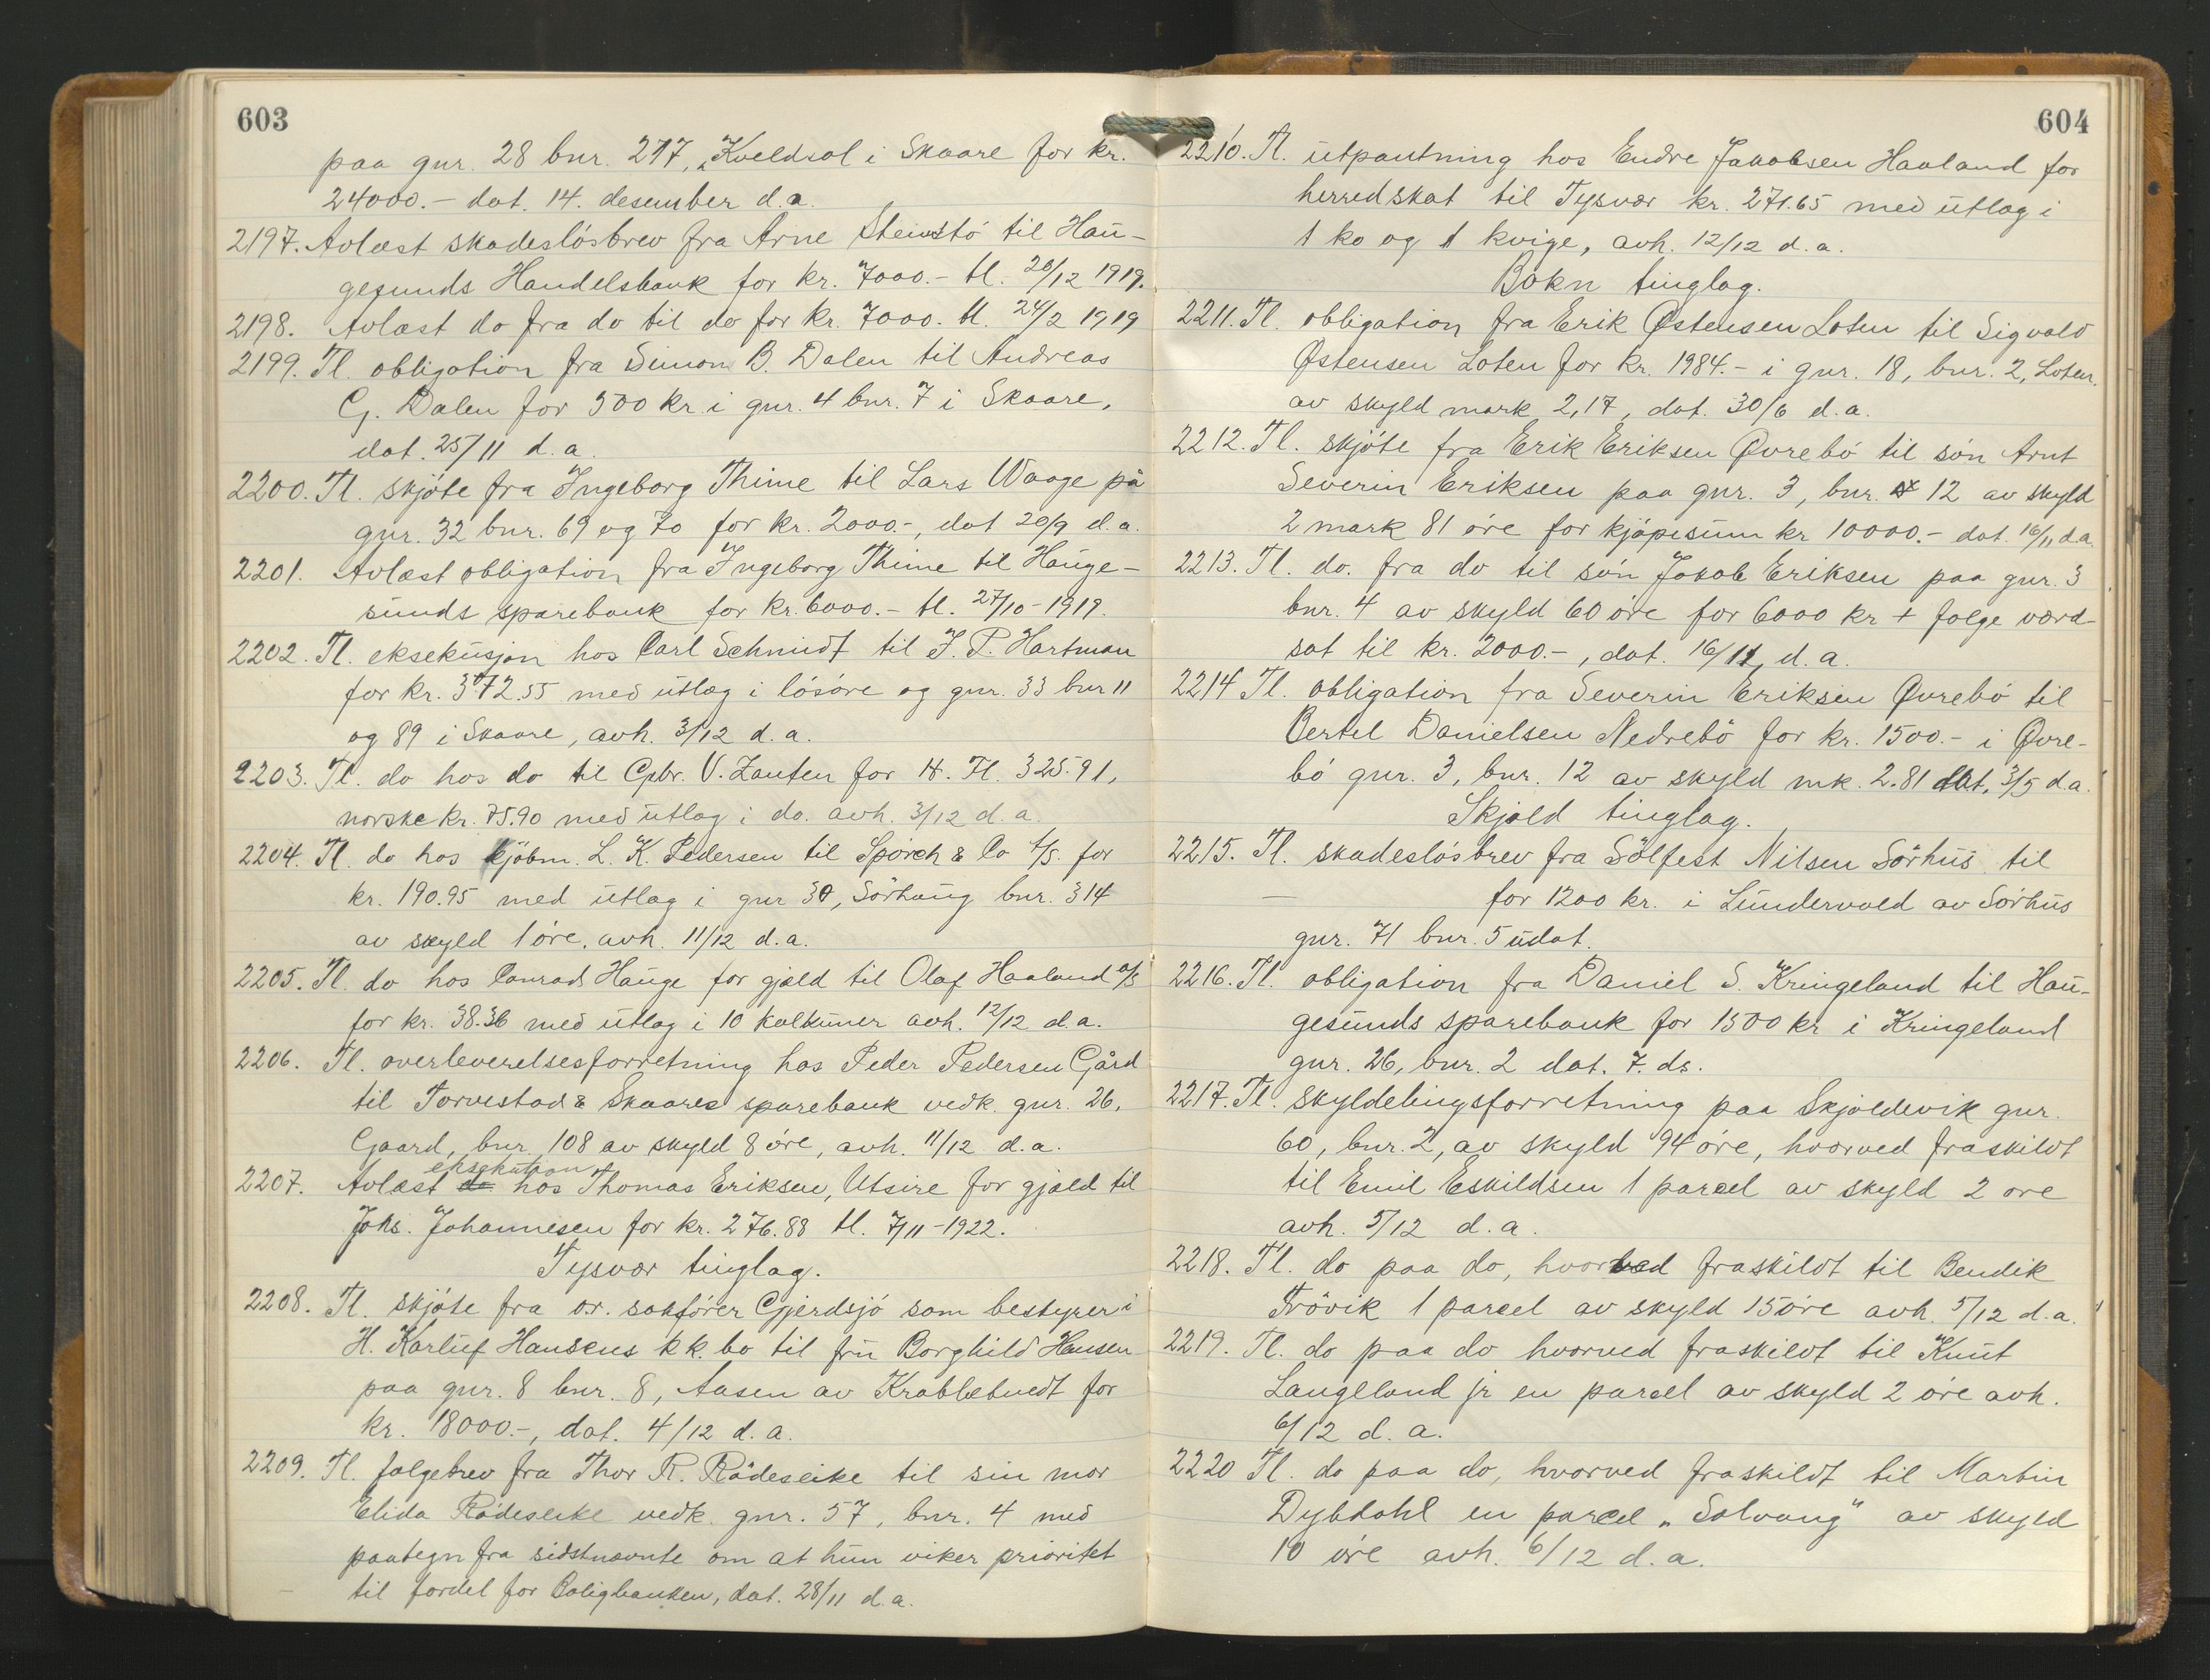 603
paa gnr. 28 bnr. 217, „Kveldsol i Skaare for kr.
24000.- dat. 14. desember d.a.
2197. Avlæst skadesløsbrev fra Arne Steinstø til Hau-
gesunds Handelsbank for kr. 7000.- tl. 20/12 1919.
2198. Avlæst do fra do til do for kr. 7000. tl. 24/2 1919
2199. Tl. obligation fra Simon B. Dalen til Andreas
G. Dalen for 500 kr i gnr. 4 bnr. 7 i Skaare,
dat. 25/11 d.a.
2200. Tl. skjøte fra Ingeborg Thime til Lars Waage på
gnr. 32 bnr. 69 og 70 for kr. 2000.-, dat 20/9 d.a.
2201. Avlæst obligation fra Ingeborg Thime til Hauge-
sunds sparebank for kr. 6000.- tl. 27/10-1919.
2202. Tl. eksekusjon hos Carl Schmidt til J. P. Hartman
for kr. 372.55 med utlæg i løsøre og gnr. 33 bnr 11
og 89 i Skaare, avh. 3/12 d.a.
2203. Tl. do hos do til Gebr. V. Zanten for H. Fl. 325.91,
norske kr. 75.90 med utlag i do. avh. 3/12 d.a.
2204. Tl. do hos kjøbm. L. K. Pedersen til Sporch & Co A/S. for
kr. 190.95 med utlag i gnr 30, Sørhaug bnr. 314
av skyld 1 øre, avh. 11/12 d.a.
2205. Tl. do hos Conrad Hauge for gjæld til Olaf Haaland a/s
for kr. 38.36 med utlag i 10 kalkuner avh. 12/12 d.a.
2206. Tl. overleverelsesforretning hos Peder Pedersen Gård
til Torvestad & Skaares sparebank vedk. gnr. 26,
Gaard, bnr. 108 av skyld 8 øre, avh. 11/12 d.a.
eksekution
2207. Avlæst do hos Thomas Eriksen, Utsire for gjæld til
Johs. Johannesen for kr. 276.88 tl. 7/11-1922.
Tysvær tinglag.
2208. Tl. skjøte fra o.r. sakfører Gjerdsjø som bestyrer i
H. Karluf Hansens kk. bo til fru Borghild Hansen
paa gnr. 8 bnr. 8, Aasen av Krabbetvedt for
kr. 18000.-, dat. 4/12 d.a.
2209. Tl. følgebrev fra Thor R. Rødeseike til sin mor
Elida Rødeseike vedk. gnr. 57, bnr. 4 med
paategn fra sidstnævnte om at hun viker prioritet
til fordel for Boligbanken, dat. 28/11 d.a.
604
2210. Tl. utpantning hos Endre Jakobsen Haaland for
herredskat til Tysvær kr. 271.65 med utlag i
1 ko og 1 kvige, avh. 12/12 d.a.
Bokn tinglag.
2211. Tl. obligation fra Erik Østensen Loten til Sigvald
Østensen Loten for kr. 1984.- i gnr. 18, bnr. 2, Loten,
av skyld mark 2,17, dat. 30/6 d.a.
2212. Tl. skjøte fra Erik Eriksen Øvrebø til søn Arnt
Severin Eriksen paa gnr. 3, bnr. 12 av skyld
2 mark 81 øre for kjøpesum kr 10000.- dat. 16/11 d.a.
2213. Tl. do. fra do til søn Jakob Eriksen paa gnr. 3
bnr. 4 av skyld 60 øre for 6000 kr + følge værd-
sat til kr. 2000.-, dat. 16/11, d.a.
2214 Tl. obligation fra Severin Eriksen Øvrebø til
Bertel Danielsen Nedrebø for kr. 1500.- i Øvre-
bø gnr. 3, bnr. 12 av skyld mk. 2.81 dat. 3/5 d.a.
Skjold tinglag.
2215. Tl. skadesløsbrev fra Sølfest Nilsen Sørhus til
— for 1200 kr. i Lundervold av Sørhus
gnr. 71 bnr. 5 udat.
2216. Tl. obligation fra Daniel S. Kringeland til Hau-
gesunds sparebank for 1500 kr i Kringeland
gnr. 26, bnr. 2 dat. 7. ds.
2217. Tl. skyldelingsforretning paa Skjoldevik gnr.
60, bnr. 2, av skyld 94 øre, hvorved fraskildt
til Emil Eskildsen 1 parcel av skyld 2 øre
avh. 5/12 d.a.
2218. Tl. do paa do, hvorved fraskildt til Bendik
Trøvik 1 parcel av skyld 15 øre avh. 5/12 d.a.
2219. Tl. do paa do hvorved fraskildt til Knut
Langeland jr en parcel av skyld 2 øre avh.
6/12 d.a.
2220 Tl. do paa do, hvorved fraskildt til Martin
Dybdahl en parcel „Solvang" av skyld
10 øre avh. 6/12 d.a.